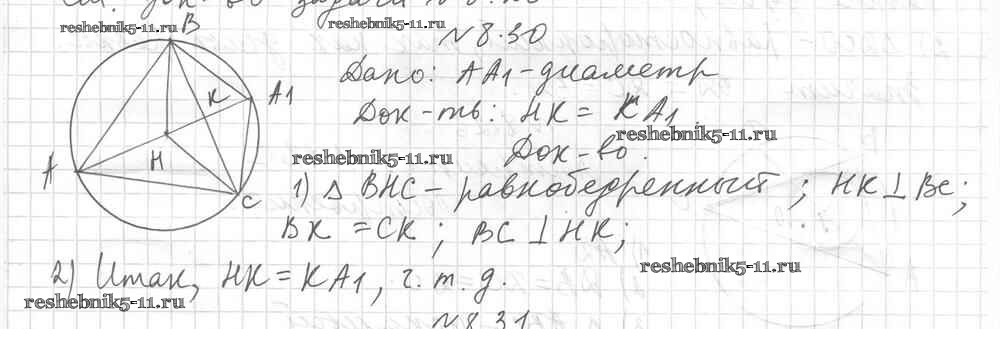 reshebnik5-11.ru
reshebnik5-11.ru
N 8.30
Дано: AA1 - диаметр
Док-ть: HK = KA1
reshebnik5-11.ru
Док-во.
reshebnik5-11.ru
1) Δ BHC - равнобедренный; HK ⊥ BC;
BK = CK; BC ⊥ HK;
2) Итак, HK = KA1, ч. т. д.
reshebnik5-11.ru
reshebnik5-11.ru
N 8.31
B
K
A1
H
A
C